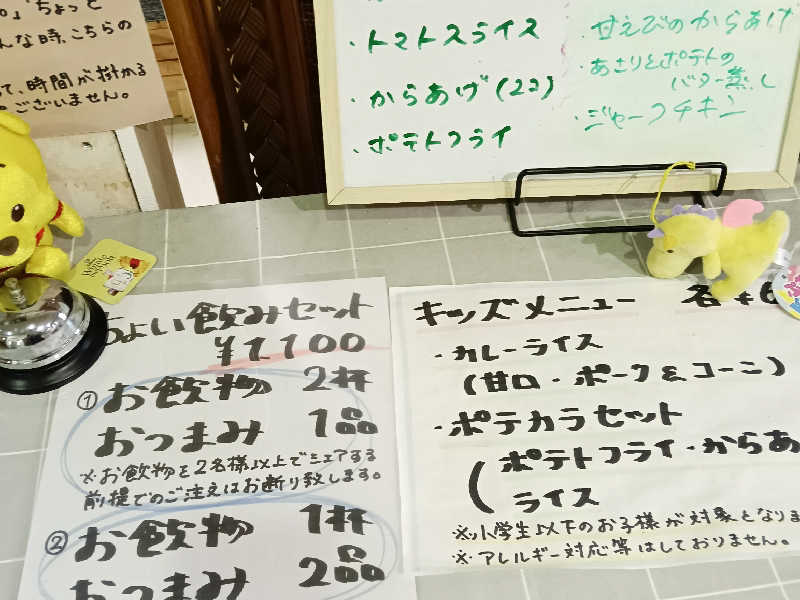 ちょっと
んな時、こちらの
て、時間が掛かる
ございません。
・トマトスライス
・からあげ(2コ)
・ポテトフライ
甘えびのからあげ
・あさりとポテトの
バター蒸し
・ジャークチキン
ちょい飲みセット
¥1100
①お飲物 2杯
おつまみ 1品
※お飲物を2名様以上でシェアする
前提でのご注文はお断り致します。
②お飲物 1杯
おつまみ 2品
キッズメニュー 各¥6
・カレーライス
(甘口・ポーク&コーン)
・ポテカラセット
(ポテトフライ・からあ
ライス
※小学生以下のお子様が対象となりま
※アレルギー対応等はしておりません。